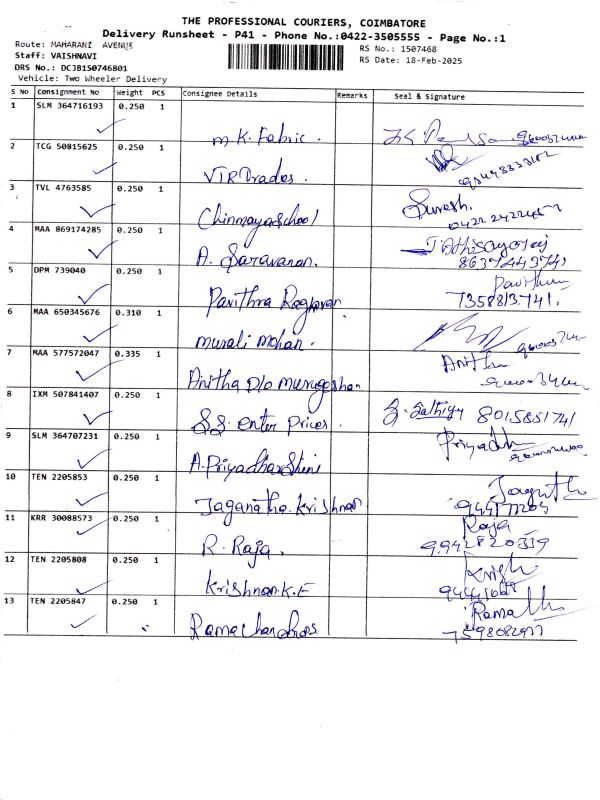 THE PROFESSIONAL COURIERS, COIMBATORE
Delivery Runsheet - P41 - Phone No.:0422-3505555 - Page No.:1
Route: MAHARANI AVENUE RS No.: 1507468
Staff: VAISHNAVI RS Date: 18-Feb-2025
DRS No.: DCJB150746801
Vehicle: Two Wheeler Delivery
S No Consignment No Weight PCS Consignee Details Remarks Seal & Signature
1 SLM 364716193 0.250 1 M.K. Fabric.
2 TCG 50815625 0.250 1 VTR Trades.
3 TVL 4763585 0.250 1 Chinmaya School Suresh.
4 MAA 869174285 0.250 1 A. Saravanan.
8637443741
5 DPM 739040 0.250 1 Pavithra Raghavan Pavithra
7358813741.
6 MAA 650345676 0.310 1 Murali Mohan.
7 MAA 577572047 0.335 1 Anitha D/o Murugeshan Anitha
8 IXM 507841407 0.250 1 S.S. Enter Prices. 8015851741
9 SLM 364707231 0.250 1 A. Priyadharshini
10 TEN 2205853 0.250 1 Jaganatha Krishnan
11 KRR 30088573 0.250 1 R. Raja. Raja
9942820339
12 TEN 2205808 0.250 1 Krishnan.K.F
13 TEN 2205847 0.250 1